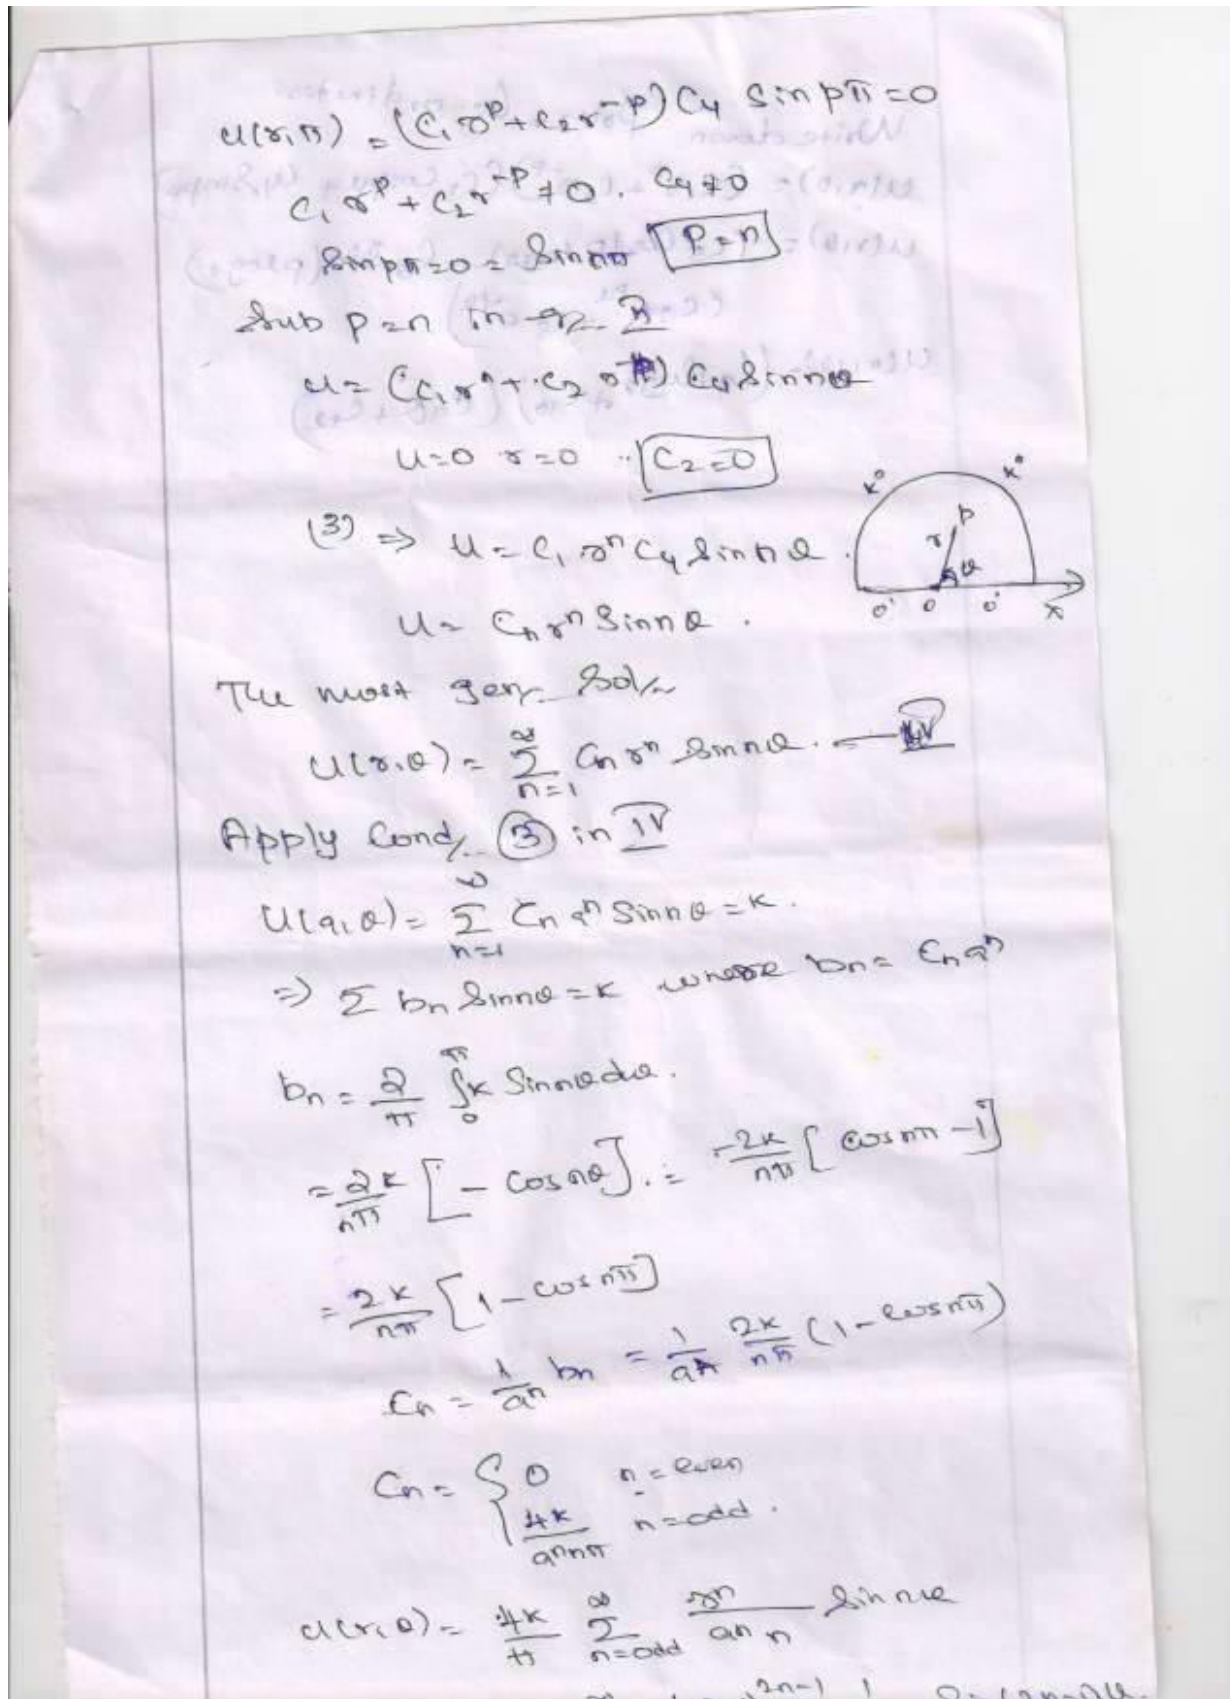 u(r,π) = (C₁ r^p + C₂ r^-p) C₄ sin pπ = 0
C₁ r^p + C₂ r^-p ≠ 0. C₄ ≠ 0
Sin pπ = 0 = Sin nπ P = n
Sub p = n in
u = (C₁ r^n + C₂ r^-n) C₄ Sin nθ
u=0 r=0 ∴ C₂ = 0
(3) ⇒ u = C₁ r^n C₄ Sin nθ.
K° K°
r P
θ
0° 0 0° x
u = Cn r^n Sin nθ.
The most gen. Soln
U(r,θ) = ∑_{n=1}^{∞} Cn r^n Sin nθ. — IV
Apply Cond. (3) in IV
U(a,θ) = ∑_{n=1}^{∞} Cn a^n Sin nθ = K.
⇒ ∑ bn Sin nθ = K where bn = Cn a^n
bn = 2/π ∫_0^π K Sin nθ dθ.
= 2K/nπ [- Cos nθ]. = -2K/nπ [Cos nπ - 1]
= 2K/nπ [1 - cos nπ]
Cn = 1/a^n bn = 1/a^n 2K/nπ (1 - cos nπ)
Cn = { 0 n = even
4K/a^n nπ n = odd.
u(r,θ) = 4K/π ∑_{n=odd}^{∞} r^n/a^n n Sin nθ